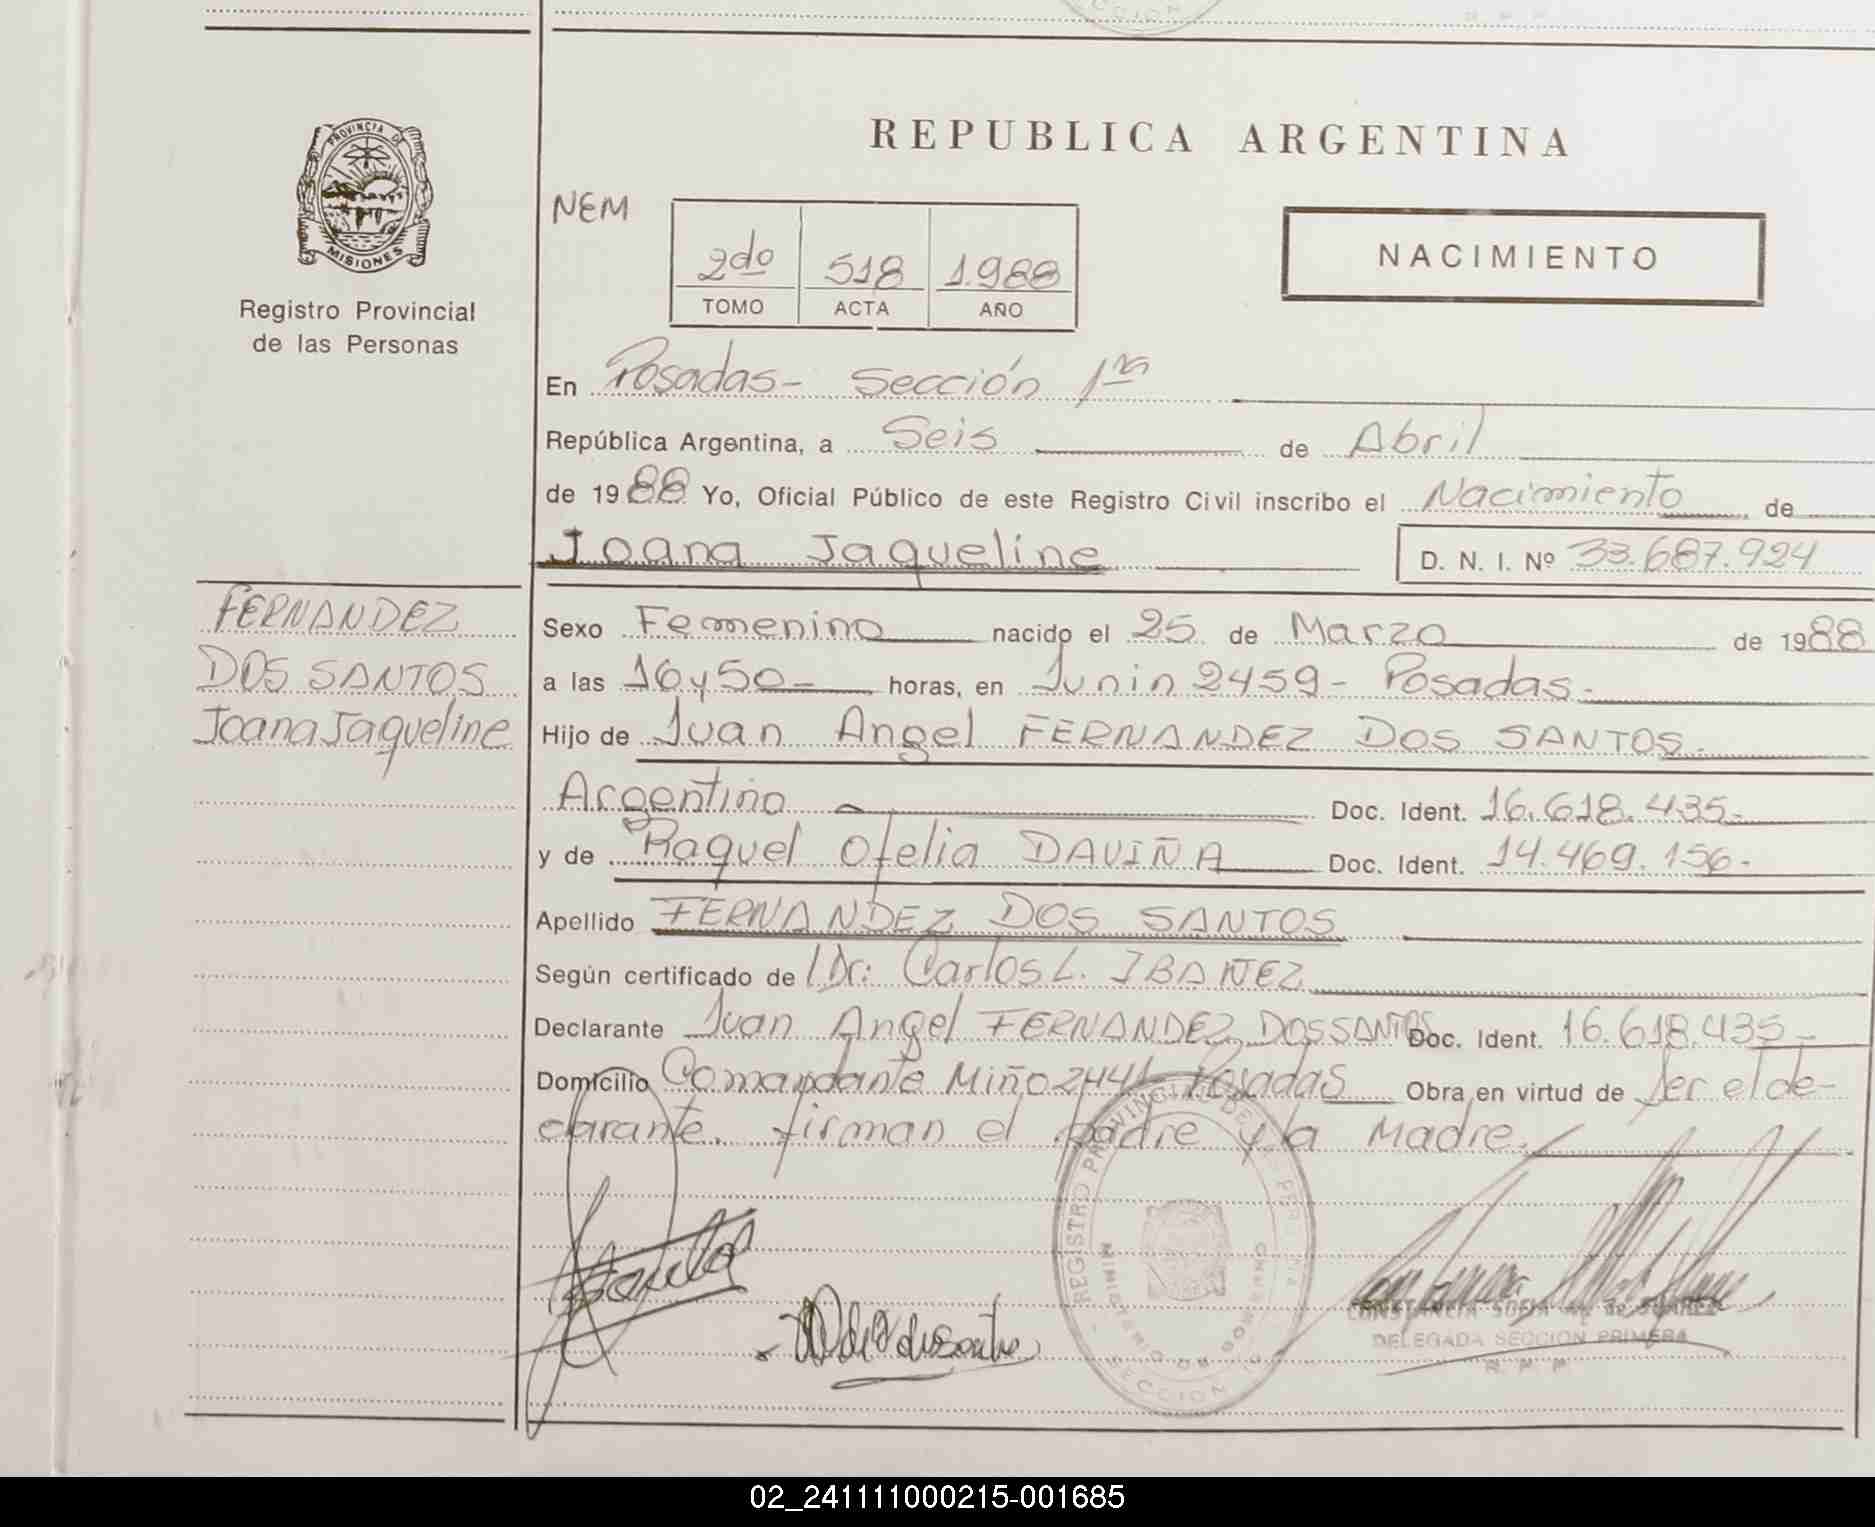 REPUBLICA ARGENTINA
PROVINCIA DE
MISIONES
Registro Provincial
de las Personas
NEM
2do 518 1.988
TOMO ACTA AÑO
NACIMIENTO
En Posadas- Sección 1ra
República Argentina, a Seis de Abril
de 1988 Yo, Oficial Público de este Registro Civil inscribo el Nacimiento de
Joana Jaqueline D. N. I. Nº 33.687.924
FERNANDEZ
DOS SANTOS
Joana Jaqueline
Sexo Femenino nacido el 25 de Marzo de 1988
a las 16 y 50- horas, en Junin 2459- Posadas.
Hijo de Juan Angel FERNANDEZ DOS SANTOS.
Argentino Doc. Ident. 16.618.435-
y de Raquel Ofelia DAVIÑA Doc. Ident. 14.469.156-
Apellido FERNANDEZ DOS SANTOS
Según certificado de Dr: Carlos L. IBAÑEZ
Declarante Juan Angel FERNANDEZ DOS SANTOS Doc. Ident. 16.618.435-
Domicilio Comandante Miño Posadas Obra en virtud de Ser el de-
clarante. firman el padre y la Madre.
REGISTRO PROVINCIAL DE LAS PERSONAS
MINISTERIO DE GOBIERNO
SECCION
CONSTANCIA SOFIA de SUAREZ
DELEGADA SECCION PRIMERA
R. P. P.
02_241111000215-001685